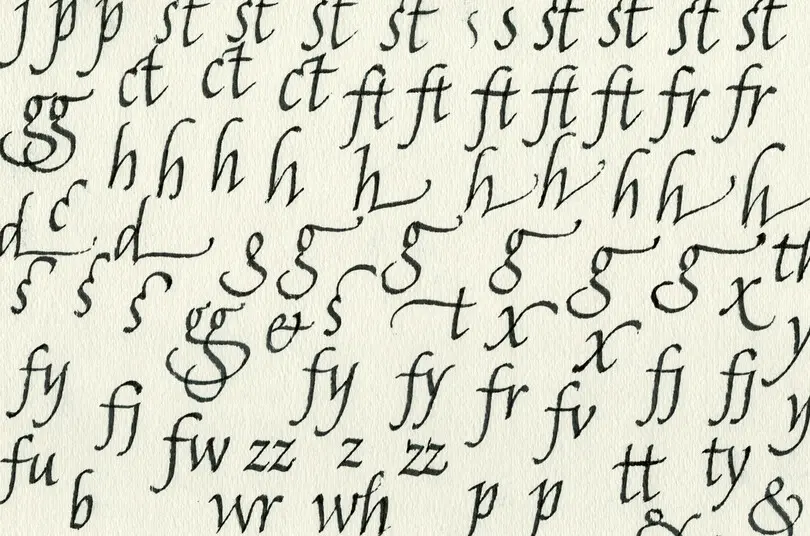 j p p st st st st s s st st st st
gg ct ct ct ft ft ft ft ft fr fr
h h h h h h h h h h
d d g g g g g g th
t x x x
gg &
fy fj fy fy fr fv fj fj y
fu fw zz z zz tt ty y
b wr wh p p & &